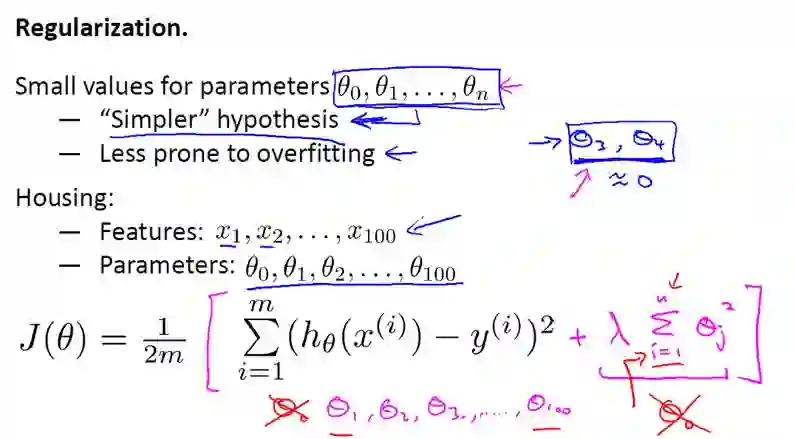 Regularization.
Small values for parameters θ₀, θ₁, …, θₙ
— “Simpler” hypothesis
— Less prone to overfitting
θ₃, θ₄
≈ 0
Housing:
— Features: x₁, x₂, …, x₁₀₀
— Parameters: θ₀, θ₁, θ₂, …, θ₁₀₀
J(θ) = 1/2m [ ∑_{i=1}^{m} (h_θ(x^{(i)}) − y^{(i)})² + λ ∑_{i=1}^{n} θ_j² ]
θ₀ θ₁, θ₂, θ₃, ....., θ₁₀₀ θ₀